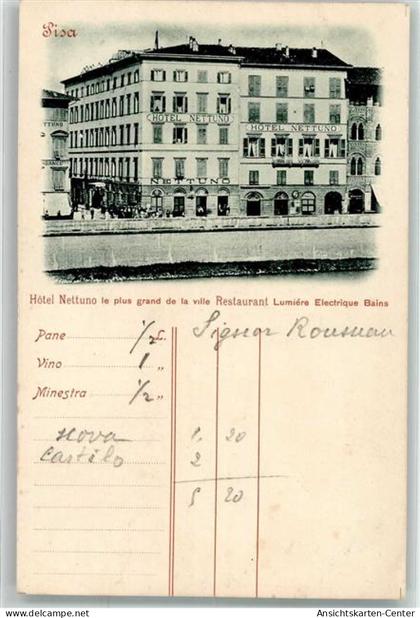 Pisa
HOTEL NETTUNO
HOTEL NETTUNO
NETTUNO
Hôtel Nettuno le plus grand de la ville Restaurant Lumiére Electrique Bains
Pane 1/2 L.
Signor Rousseau
Vino 1 „
Minestra 1/2 „
Nova 1. 20
Castelo 2
5 20
© Ansichtskarten-Center.com
Ansichtskarten-Center